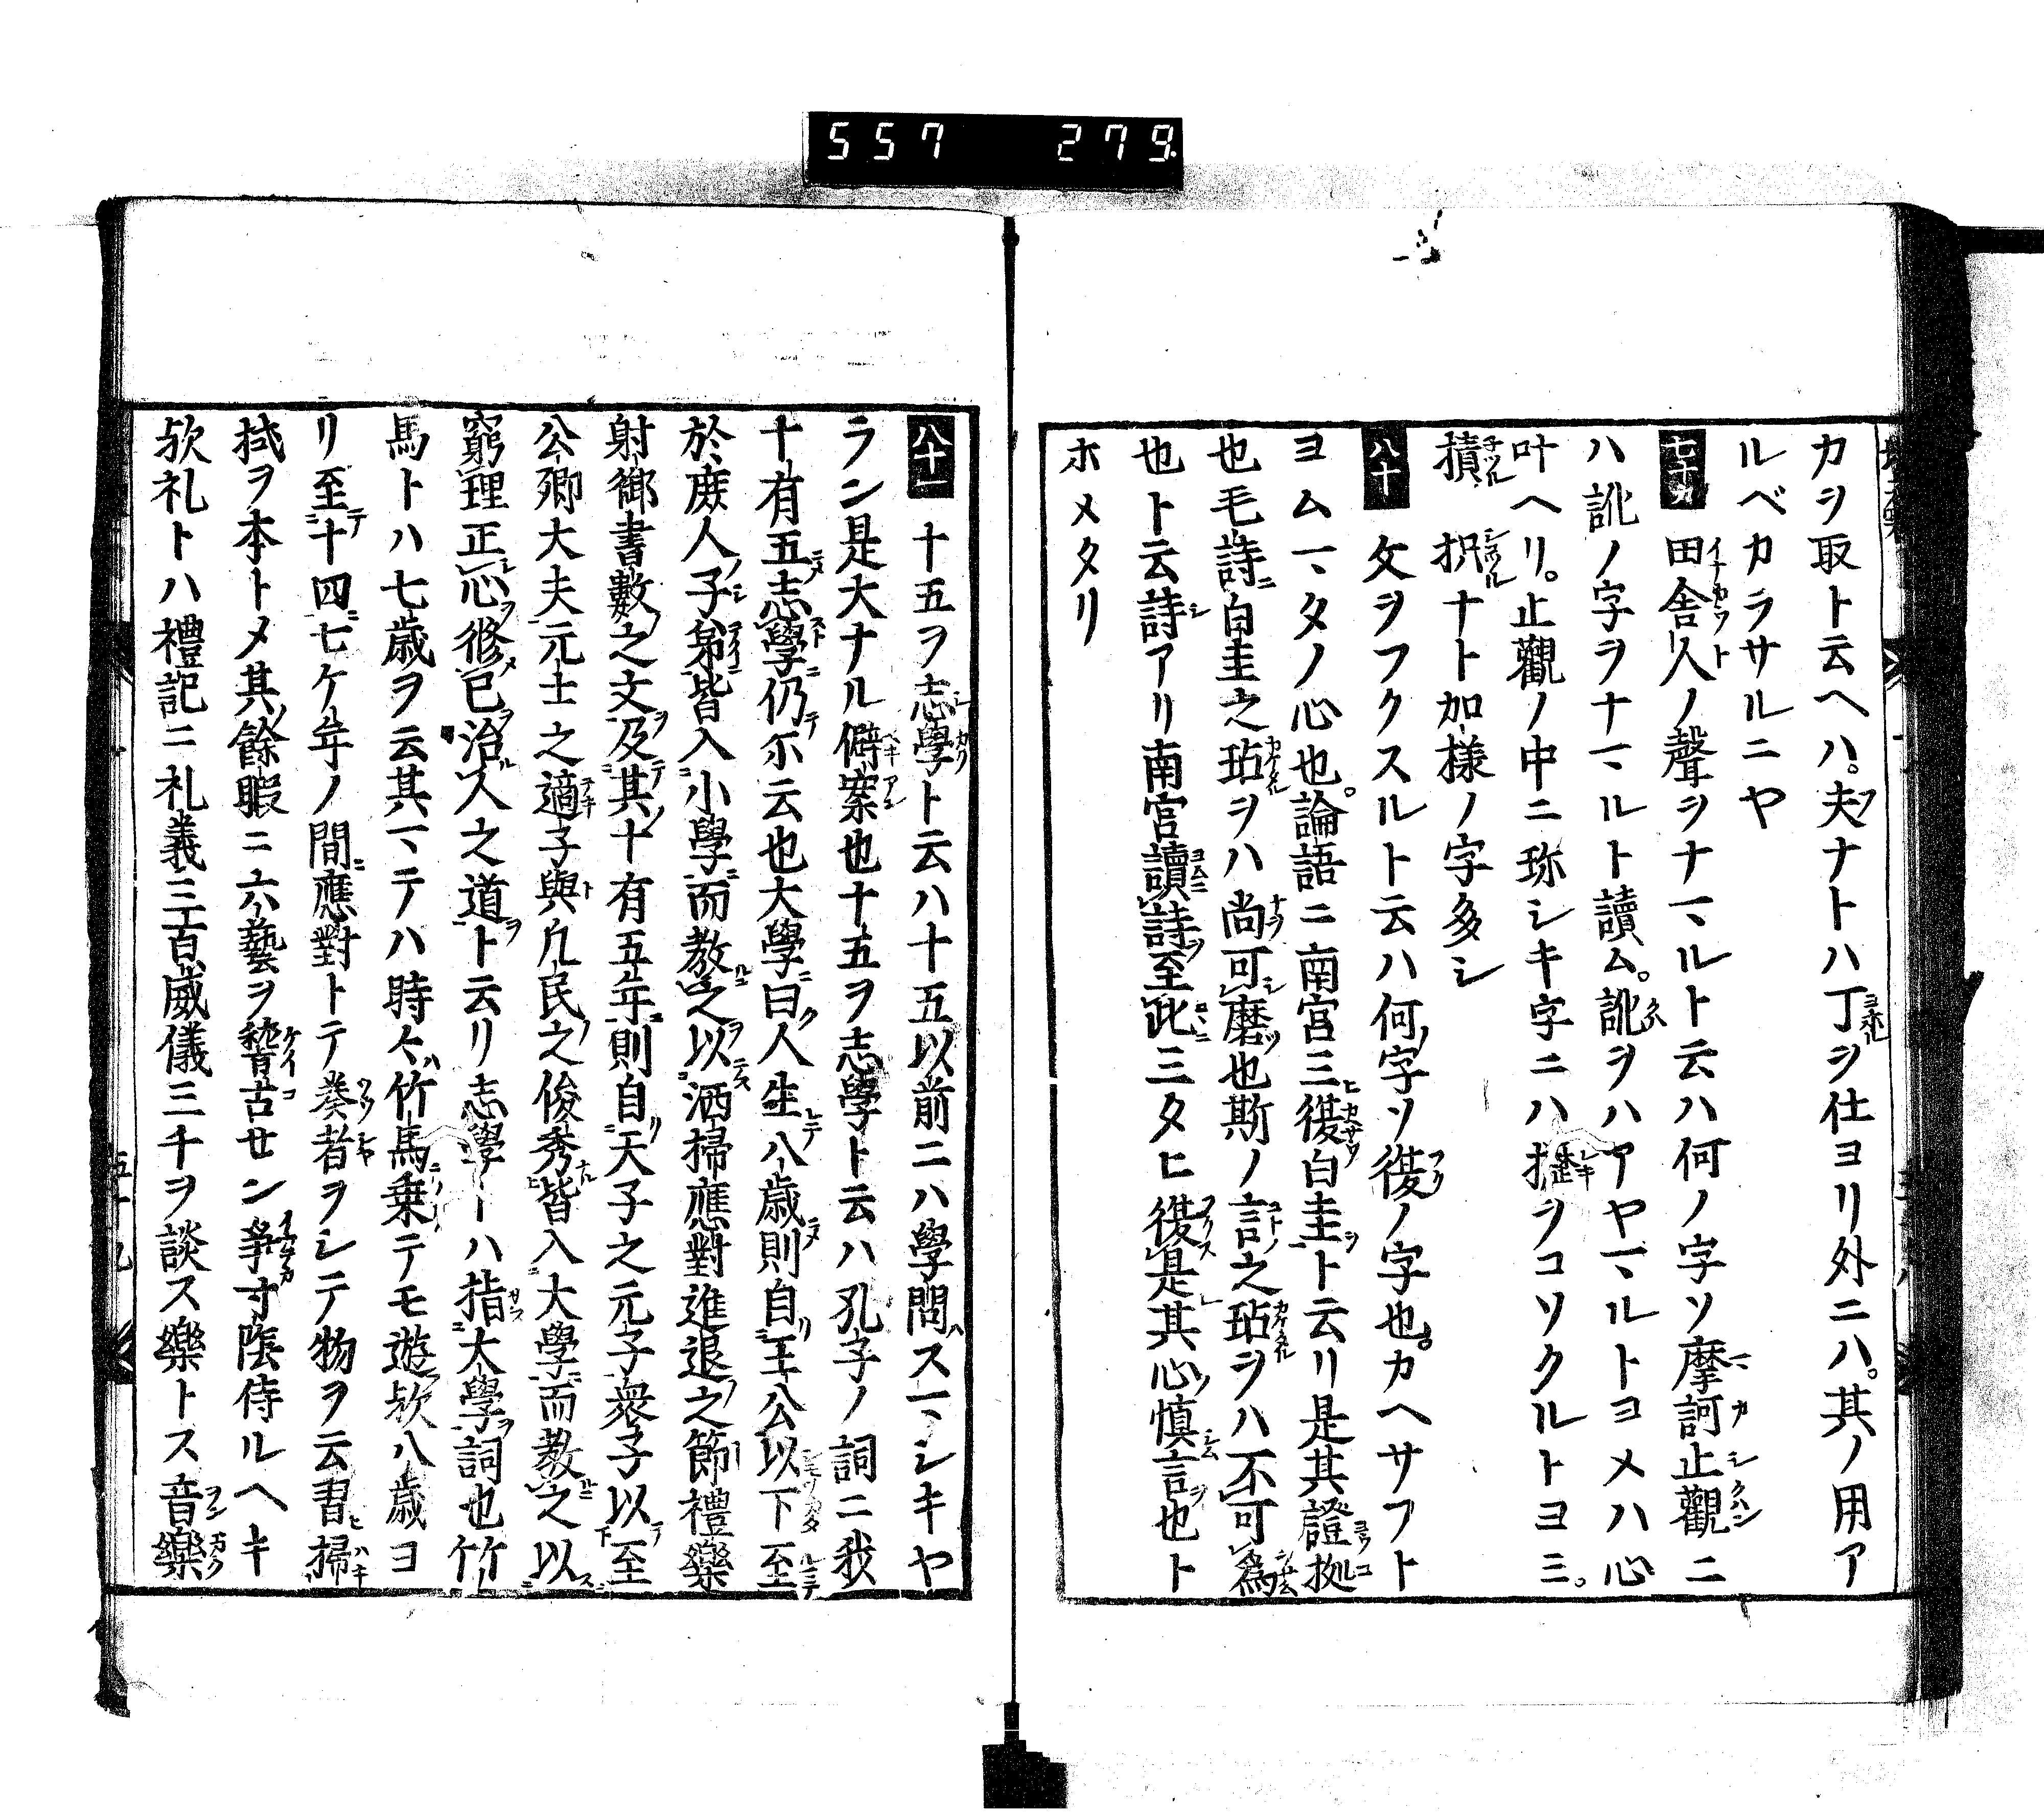 557 279
カヲ取ト云ヘハ。夫ナトハ丁ヲ仕ヨリ外ニハ。其ノ用ア
ルベカラサルニヤ
七十九 田舎人ノ聲ヲナマルト云ハ何ノ字ソ摩訶止觀ニ
ハ訛ノ字ヲナマルト讀ム。訛ヲハアヤマルトヨメハ心
叶ヘリ。止觀ノ中ニ珎シキ字ニハ擽ヲコソクルトヨミ。
ナト加様ノ字多シ
八十 文ヲフクスルト云ハ何字ソ復ノ字也。カヘサフト
ヨムマタノ心也。論語ニ南宮三復白圭ト云リ是其證拠
也毛詩白圭之玷ヲハ尚可磨也斯ノ言之玷ヲハ不可為
也ト云詩アリ南宮讀詩至此三タヒ復是其心慎言也ト
ホメタリ
八十一 十五ヲ志學ト云ハ十五以前ニハ學問スマシキヤ
ラン是大ナル僻案也十五ヲ志學ト云ハ孔子ノ詞ニ我
十有五志學仍尓云也大學曰人生八歳則自王公以下至
於庶人子弟皆入小學而教之以洒掃應對進退之節禮樂
射御書數之文及其十有五年則自天子之元子衆子以至
公卿大夫元士之適子與凡民之俊秀皆入大學而教之以
窮理正心修己治人之道ト云リ志學トハ指大學詞也竹
馬トハ七歳ヲ云其マテハ時々竹馬乗テモ遊欤八歳ヨ
リ至十四七ケ年ノ間應對トテ者ヲシテ物ヲ云習掃
拭ヲ本トメ其餘暇ニ六藝ヲ稽古せン争寸陰侍ルヘキ
欤礼トハ禮記ニ礼義三百威儀三千ヲ談ス樂トス音樂